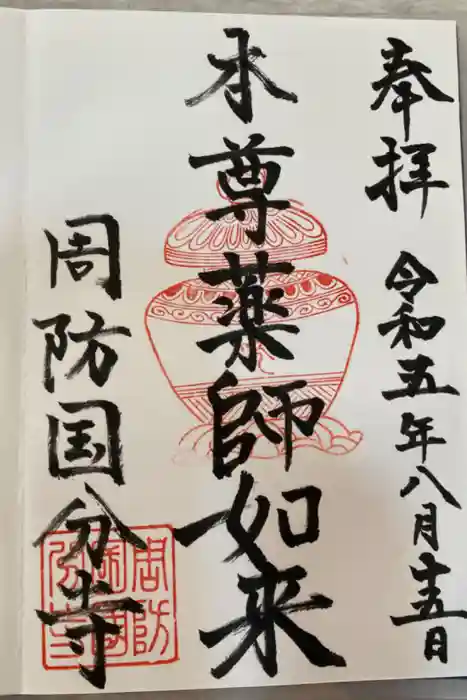 奉拝 令和五年八月十五日
本尊薬師如来
周防国分寺
周防国分寺